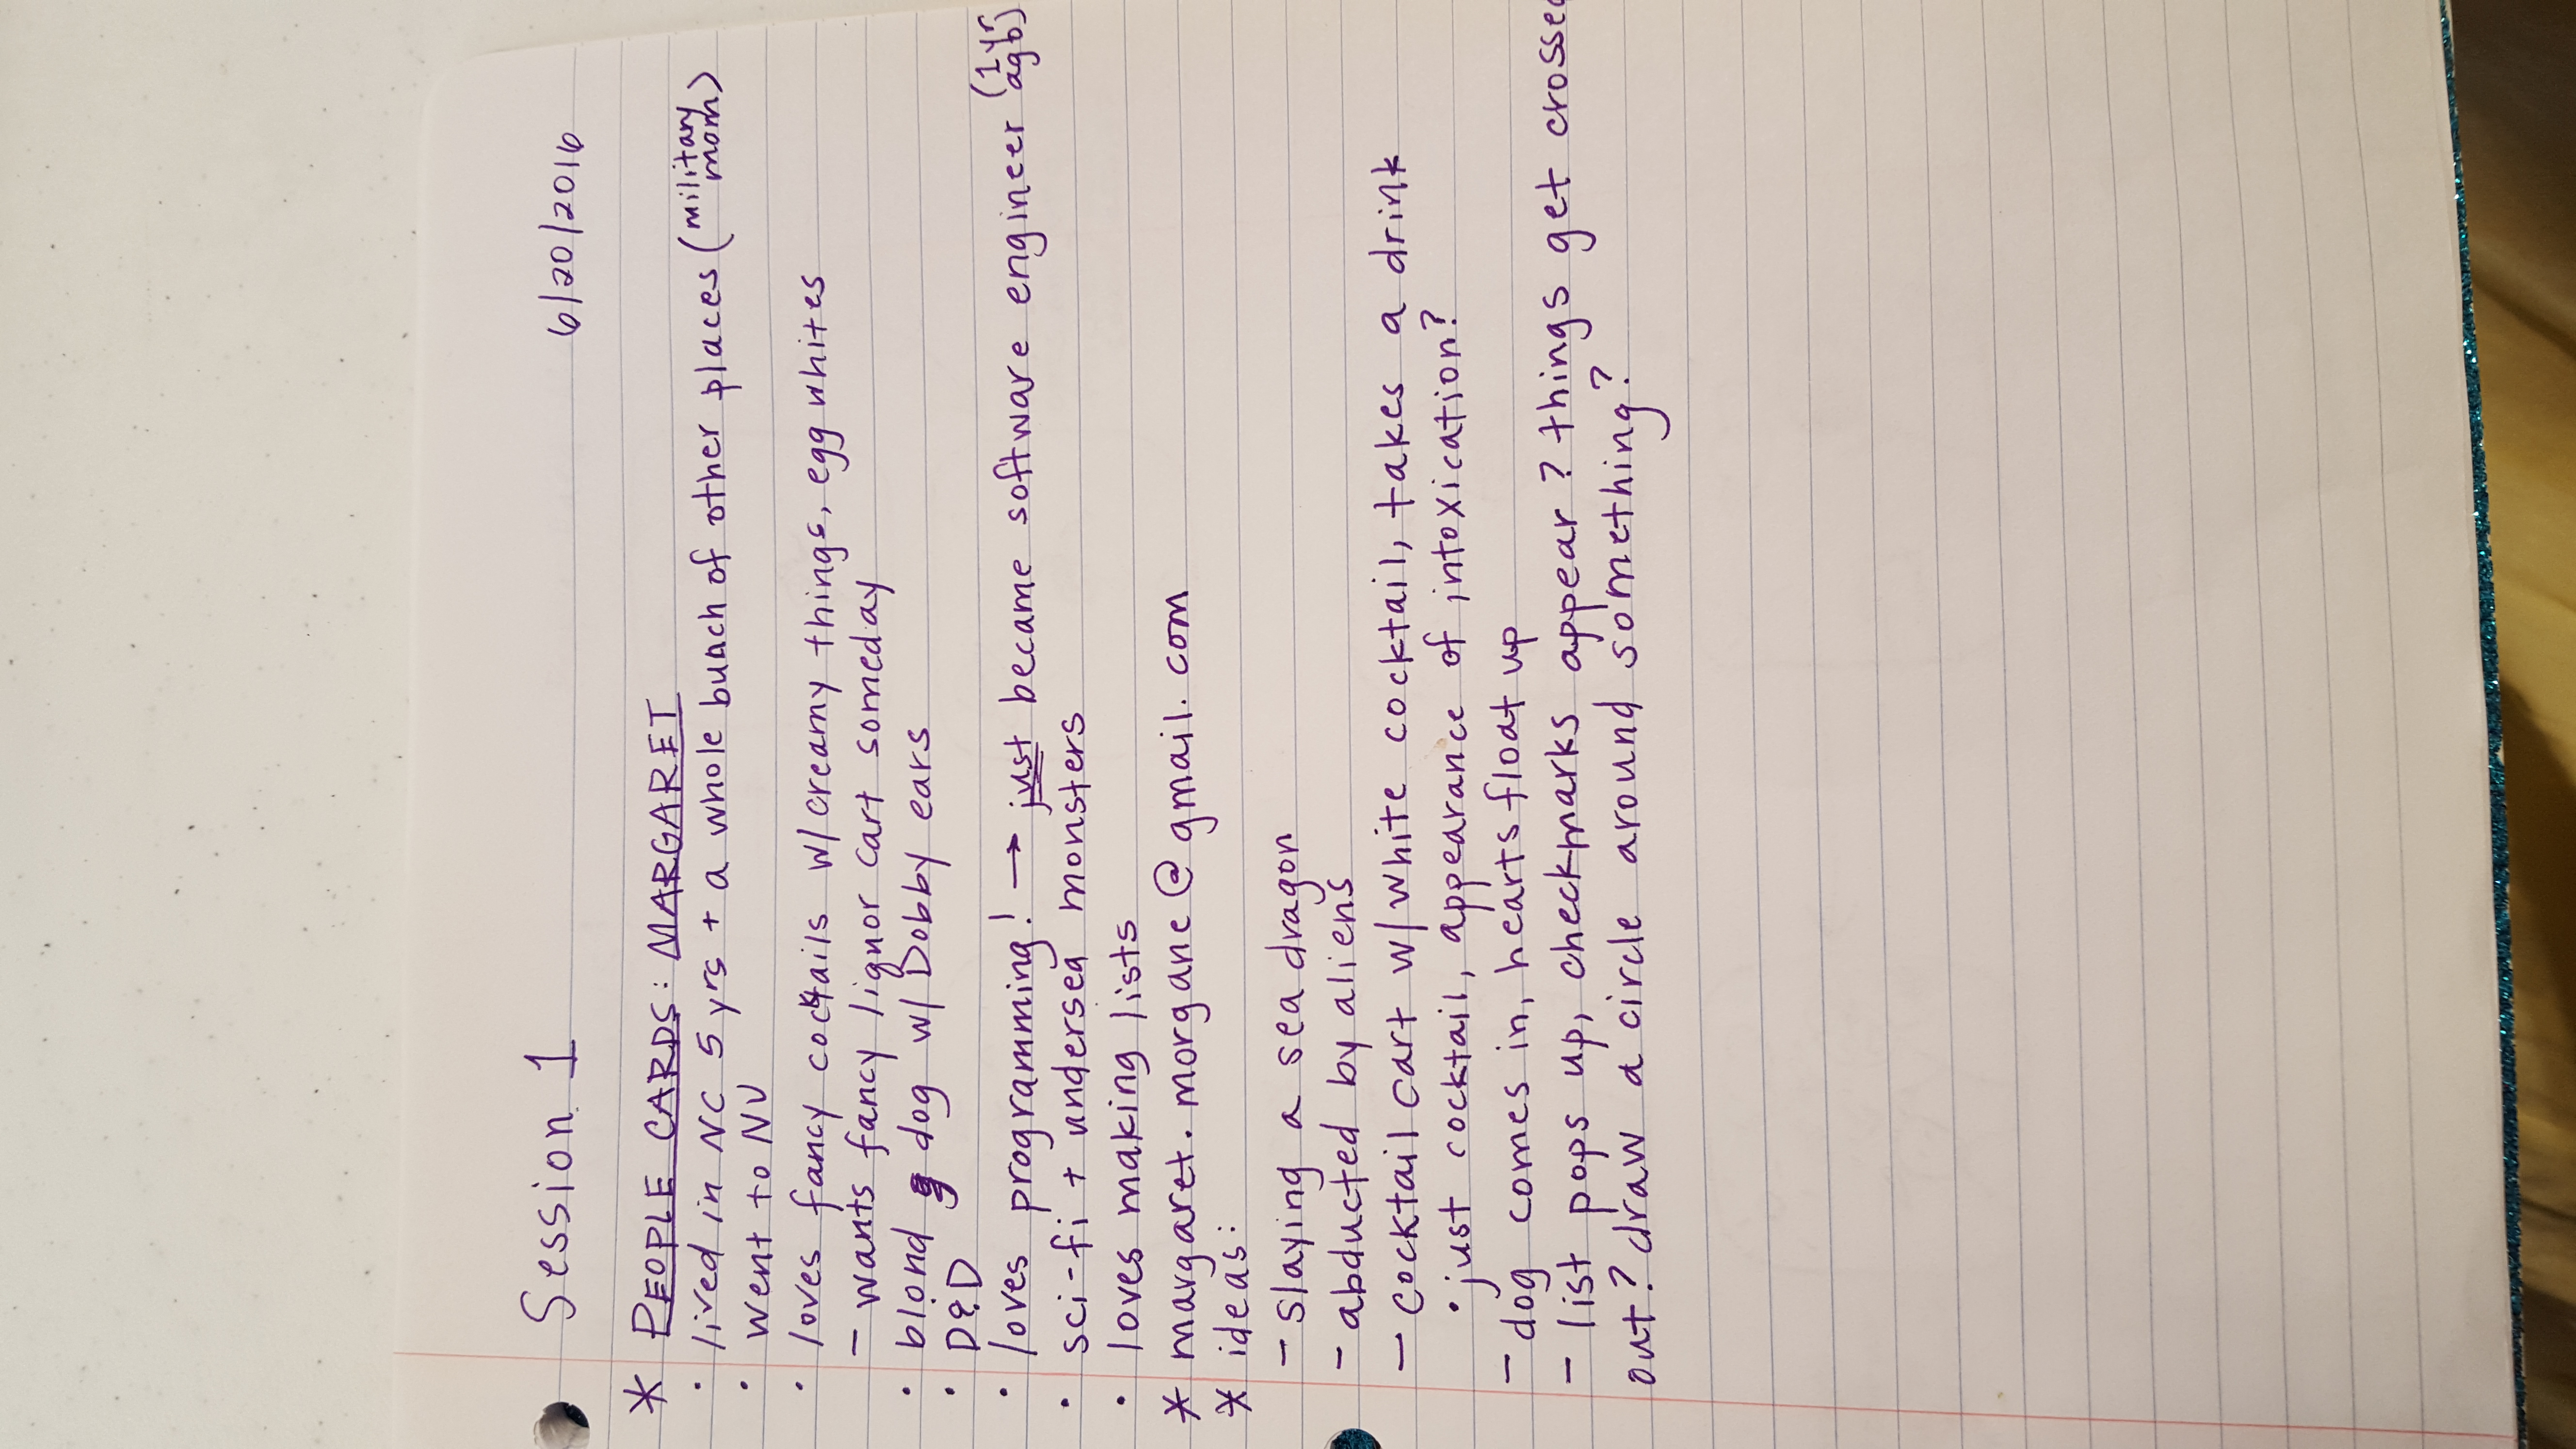 Session 1 6/20/2016
* PEOPLE CARDS: MARGARET
• lived in NC 5 yrs + a whole bunch of other places (military mom)
• went to NU
• loves fancy cocktails w/ creamy things, egg whites
- wants fancy liquor cart someday
• blond dog w/ Dobby ears
• D&D
• loves programming! → just became software engineer (1 yr ago)
• sci-fi + undersea monsters
• loves making lists
* margaret.morgane@gmail.com
* ideas:
- slaying a sea dragon
- abducted by aliens
- cocktail cart w/ white cocktail, takes a drink
• just cocktail, appearance of intoxication?
- dog comes in, hearts float up
- list pops up, checkmarks appear? things get crossed
out? draw a circle around something?